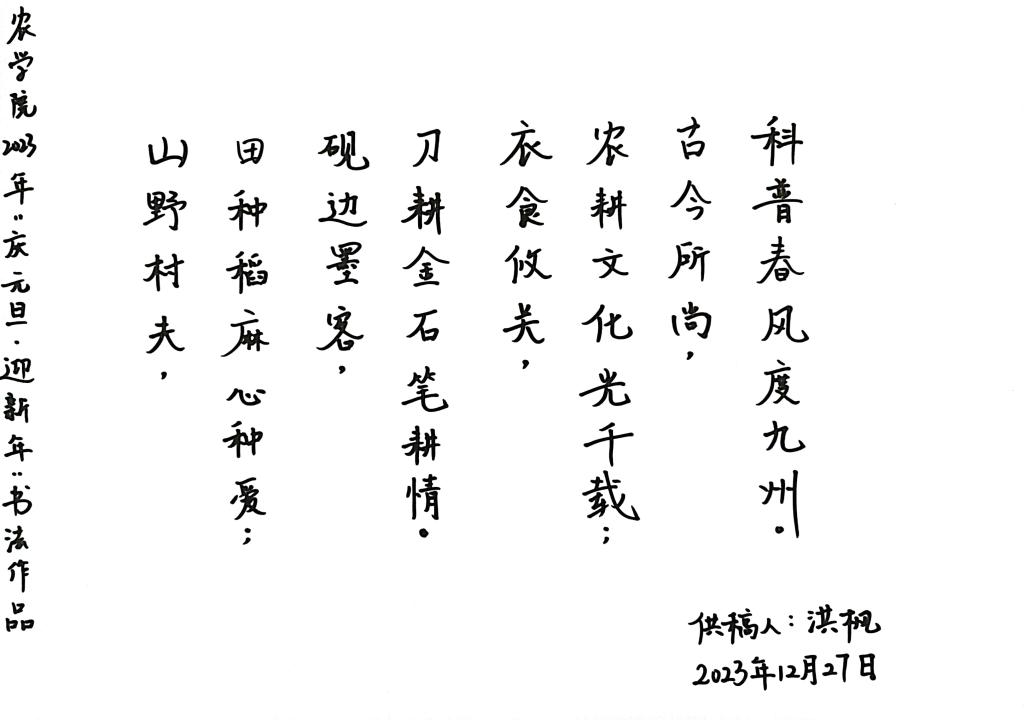 农学院2023年"庆元旦·迎新年"书法作品
山野村夫，
田种稻麻心种爱；
砚边墨客，
刀耕金石笔耕情。
衣食攸关，
农耕文化光千载；
古今所尚，
科普春风度九州。
供稿人：洪枫
2023年12月27日